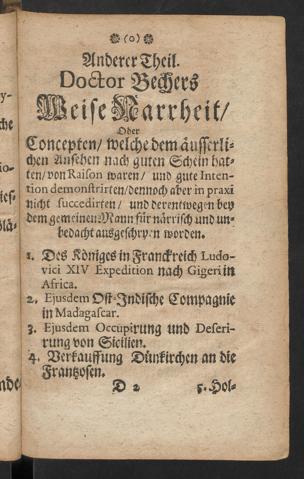 (o)
Anderer Theil.
Doctor Bechers
Weise Narrheit/
Oder
Concepten/ welche dem äusserli-
chen Ansehen nach guten Schein hat-
ten/ von Raison waren/ und gute Inten-
tion demonstrirten/ dennoch aber in praxi
nicht succedirten/ und derentwegen bey
dem gemeinen Mann für närrisch und un-
bedacht ausgeschryen worden.
1. Des Königes in Franckreich Ludo-
vici XIV Expedition nach Gigeri in
Africa.
2. Ejusdem Ost-Indische Compagnie
in Madagascar.
3. Ejusdem Occupirung und Deseri-
rung von Sicilien.
4. Verkauffung Dünkirchen an die
Frantzosen.
D 2 5. Hol-